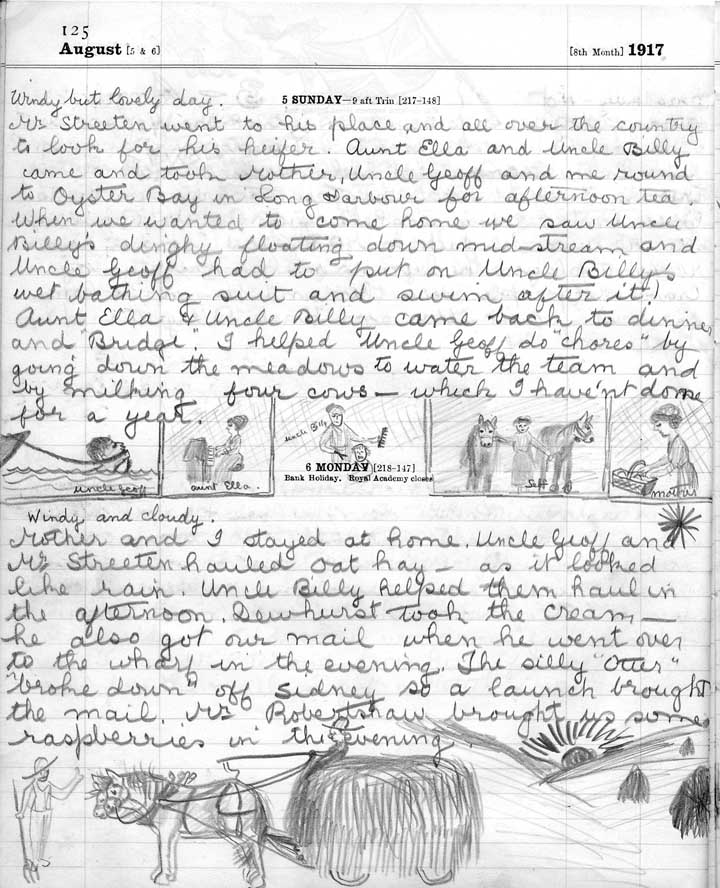 125
August [5 & 6] [8th Month] 1917
Windy but lovely day. 5 SUNDAY—9 aft Trin [217-148]
Mr Streeten went to his place and all over the country
to look for his heifer. Aunt Ella and Uncle Billy
came and took Mother, Uncle Geoff and me round
to Oyster Bay in Long Harbour for afternoon tea.
When we wanted to come home we saw Uncle
Billy's dinghy floating down mid-stream and
Uncle Geoff had to put on Uncle Billy's
wet bathing suit and swim after it!
Aunt Ella & Uncle Billy came back to dinner
and "Bridge". I helped Uncle Geoff do "chores" by
going down the meadows to water the team and
by milking four cows — which I have'nt done
for a year.
Uncle Geoff
Aunt Ella.
Uncle Billy
Self
Mother
6 MONDAY [218-147]
Bank Holiday. Royal Academy closes
Windy and cloudy.
Mother and I stayed at home. Uncle Geoff and
Mr Streeten hauled oat hay — as it looked
like rain. Uncle Billy helped them haul in
the afternoon. Dewhurst took the cream —
he also got our mail when he went over
to the wharf in the evening. The silly "Otter"
"broke down" off Sidney so a launch brought
the mail. Mr Robertshaw brought us some
raspberries in the evening.